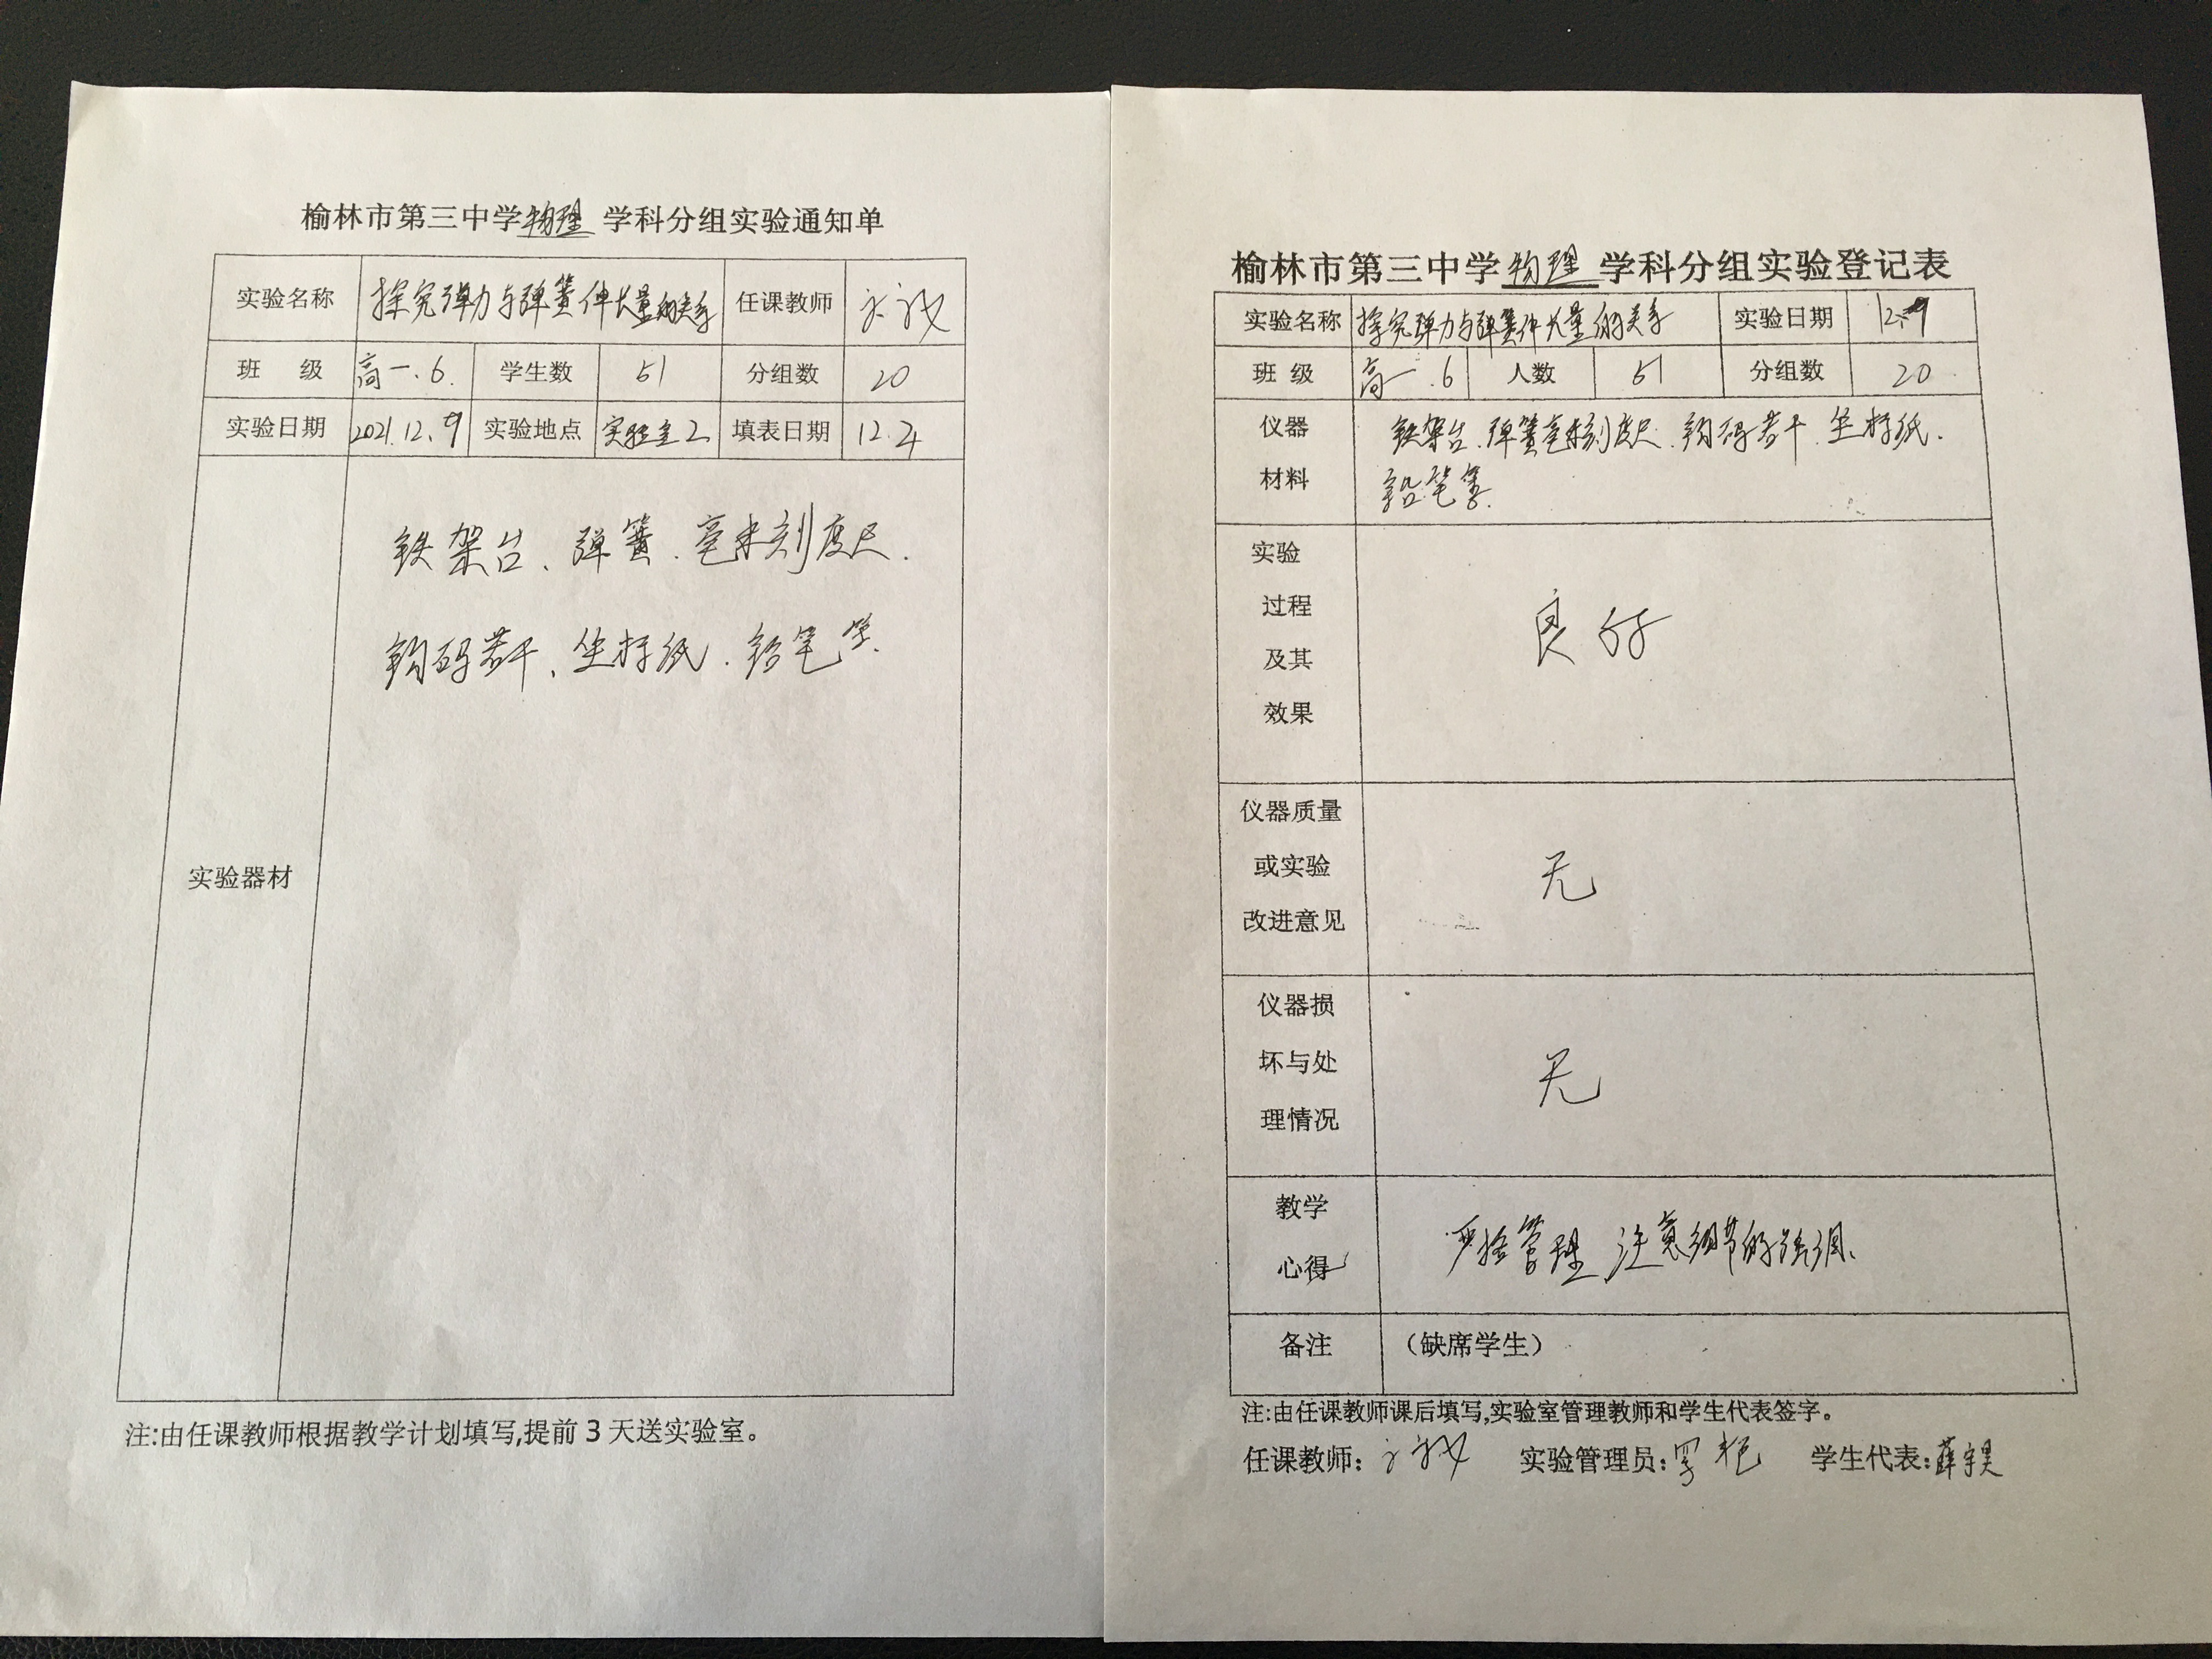 榆林市第三中学物理 学科分组实验通知单
实验名称 探究弹力与弹簧伸长量的关系 任课教师
班 级 高一.6. 学生数 51 分组数 20
实验日期 2021.12.9 实验地点 实验室2 填表日期 12.4
铁架台、弹簧、毫米刻度尺.
钩码若干、坐标纸.铅笔等.
实验器材
注:由任课教师根据教学计划填写,提前3天送实验室。
榆林市第三中学物理学科分组实验登记表
实验名称 探究弹力与弹簧伸长量的关系 实验日期 12.9
班 级 高一.6 人数 51 分组数 20
仪器 铁架台.弹簧毫米刻度尺.钩码若干.坐标纸.
材料 铅笔等.
实验
过程 良好
及其
效果
仪器质量
或实验 无
改进意见
仪器损
坏与处 无
理情况
教学
心得 严格管理 注意细节的强调、
备注 (缺席学生)
注:由任课教师课后填写,实验室管理教师和学生代表签字。
任课教师: 实验管理员: 学生代表:薛宇昊